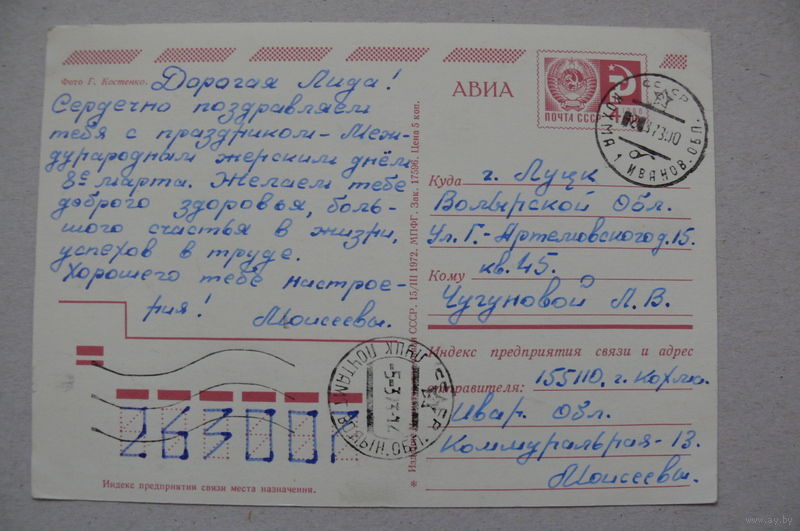 Фото Г. Костенко.
Дорогая Лида!
Сердечно поздравляем
тебя с праздником – Меж-
дународным женским днём
8е марта. Желаем тебе
доброго здоровья, боль-
шого счастья в жизни,
успехов в труде.
Хорошего тебе настрое-
ния!
Моисеевы.
263001
Индекс предприятия связи места назначения.
15/III 1972. МПФГ. Зак. 17596. Цена 5 коп.
АВИА
ПОЧТА СССР
4
СССР
КОХМА 1 ИВАНОВ. ОБЛ.
Куда г. Луцк
Волынской Обл.
Ул. Г.-Артемовского д. 15.
кв. 45.
Кому
Чугуновой Л. В.
Индекс предприятия связи и адрес
отправителя: 155110, г. Кохма
Ивар Обл.
Коммунальная-13.
Моисеевы.
СССР
ЛУЦК ПОЧТАМТ ВОЛЫН. ОБЛ.